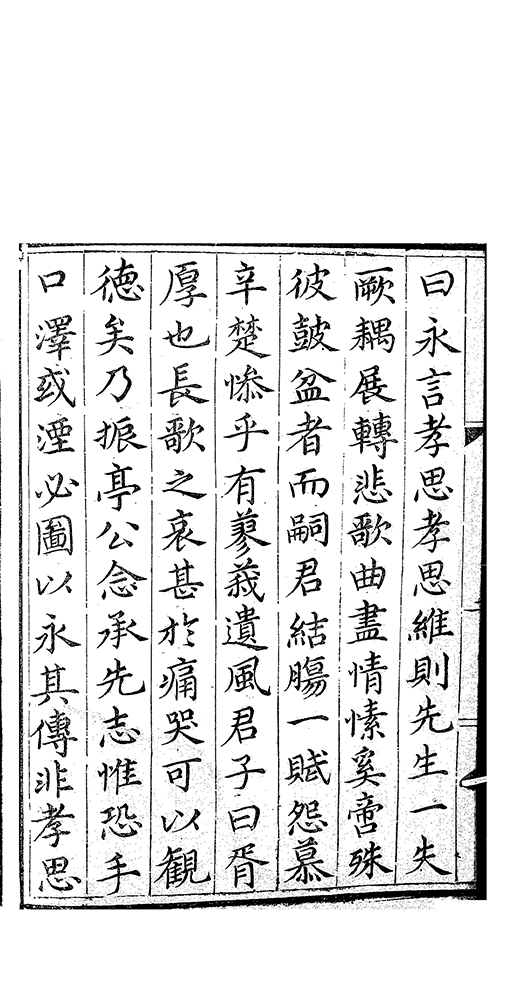 曰永言孝思孝思維則先生一失
厥耦展轉悲歌曲盡情愫奚啻殊
彼鼓盆者而嗣君結膓一賦怨慕
辛楚慘乎有蓼莪遺風君子曰胥
厚也長歌之哀甚於痛哭可以觀
德矣乃振亭公念承先志惟恐手
口澤或湮必圖以永其傳非孝思